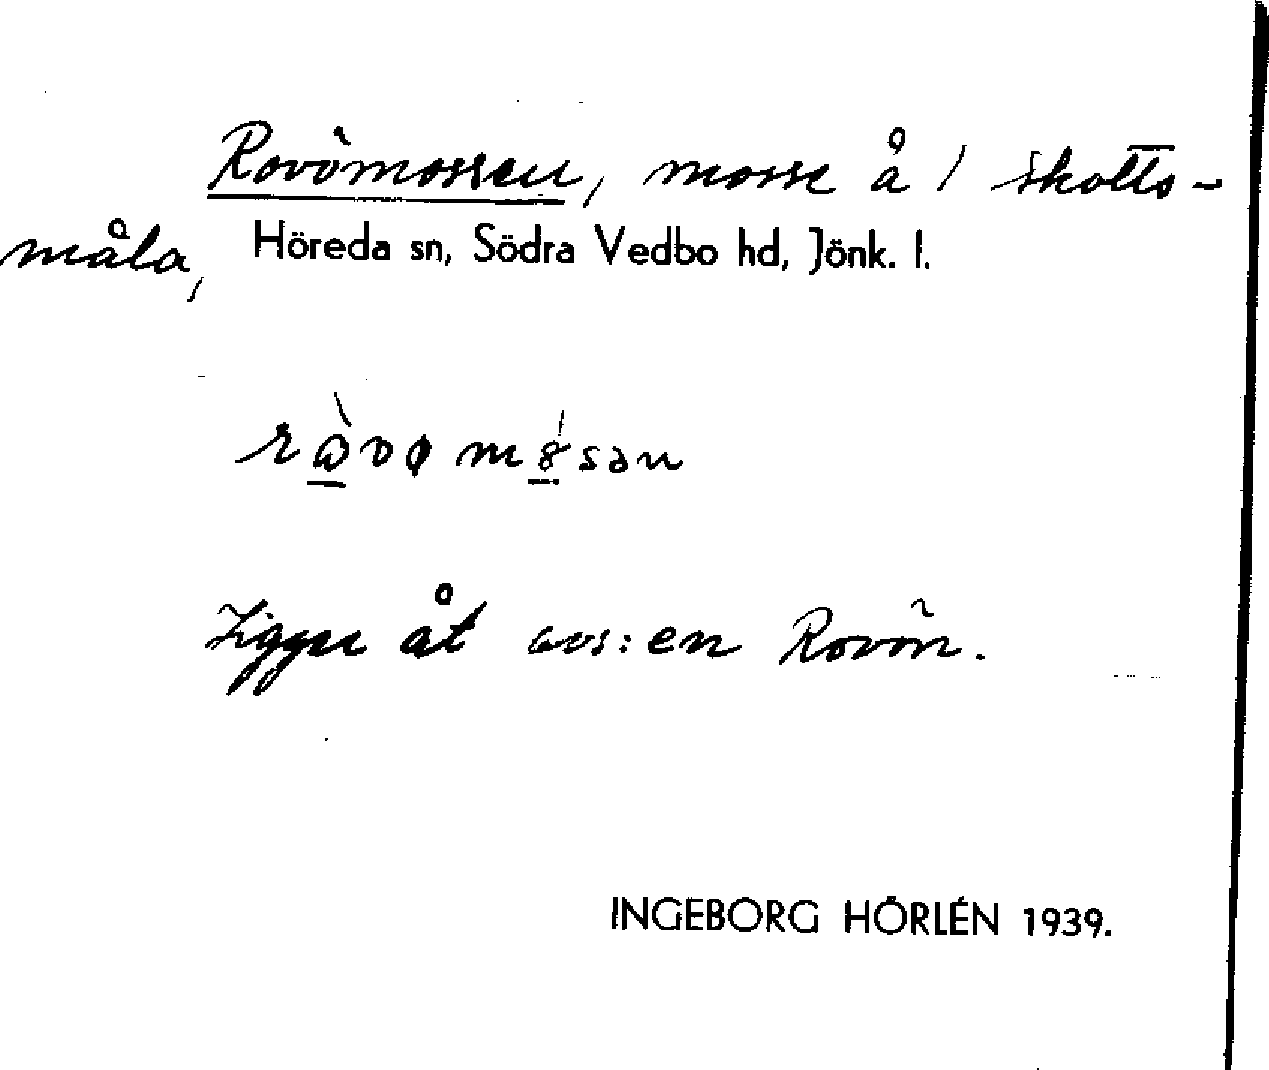 Rovömossen, mosse å / Skotts-
måla, Höreda sn, Södra Vedbo hd, Jönk. l.
Ligger åt avs:en Rovön.
INGEBORG HÖRLÉN 1939.